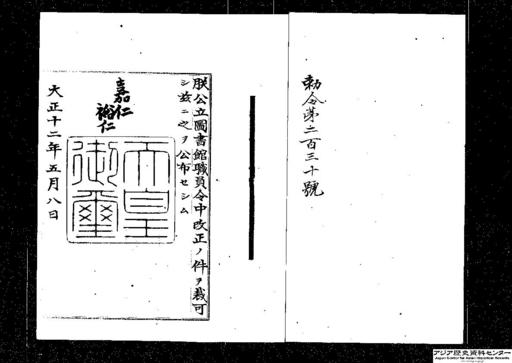 勅令第二百三十號
朕公立圖書館職員令中改正ノ件ヲ裁可
シ茲ニ之ヲ公布セシム
嘉仁
裕仁
天皇
御璽
大正十二年五月八日
アジア歴史資料センター
Japan Center for Asian Historical Records